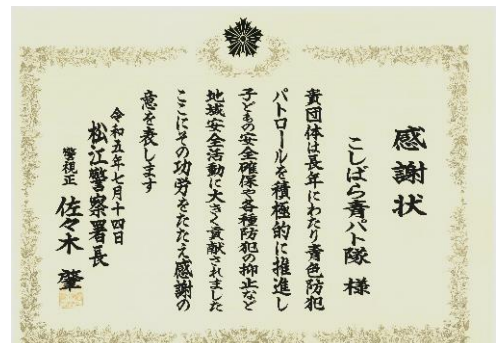 感謝状
こしばら青パト隊 様
貴団体は長年にわたり青色防犯
パトロールを積極的に推進し
子どもの安全確保や各種防犯の抑止など
地域安全活動に大きく貢献されました
ここにその功労をたたえ感謝の
意を表します
令和五年七月十四日
松江警察署長
警視正 佐々木 肇